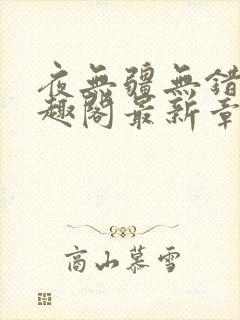 夜無疆無錯
趣閣最新章
高山慕雪